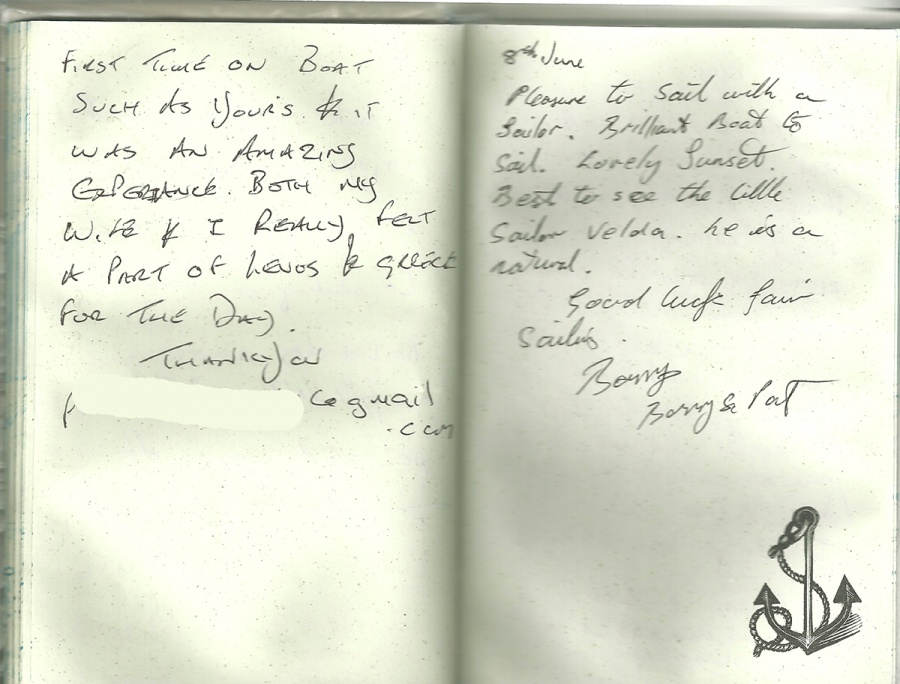 FIRST TIME ON BOAT
SUCH AS YOURS & IT
WAS AN AMAZING
EXPERIANCE. BOTH MY
WIFE & I REALLY FELT
A PART OF &
FOR THE DAY.
THANKYOU
@gmail
.com
8th June
Pleasure to Sail with a
Sailor. Brilliant Boat to
Sail. Lovely Sunset.
Best to see the little
Sailor Velda. he is a
natural.
Good luck fair
Sailing.
Barry
Barry & Pat